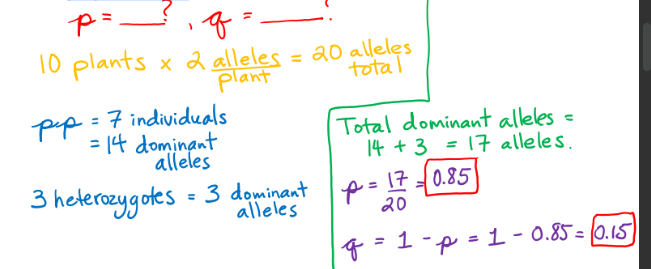 p = ___? , q = ___?
10 plants x 2 alleles/plant = 20 alleles total
pp = 7 individuals
= 14 dominant
alleles
3 heterozygotes = 3 dominant
alleles
Total dominant alleles =
14 + 3 = 17 alleles.
p = 17/20 = 0.85
q = 1 - p = 1 - 0.85 = 0.15